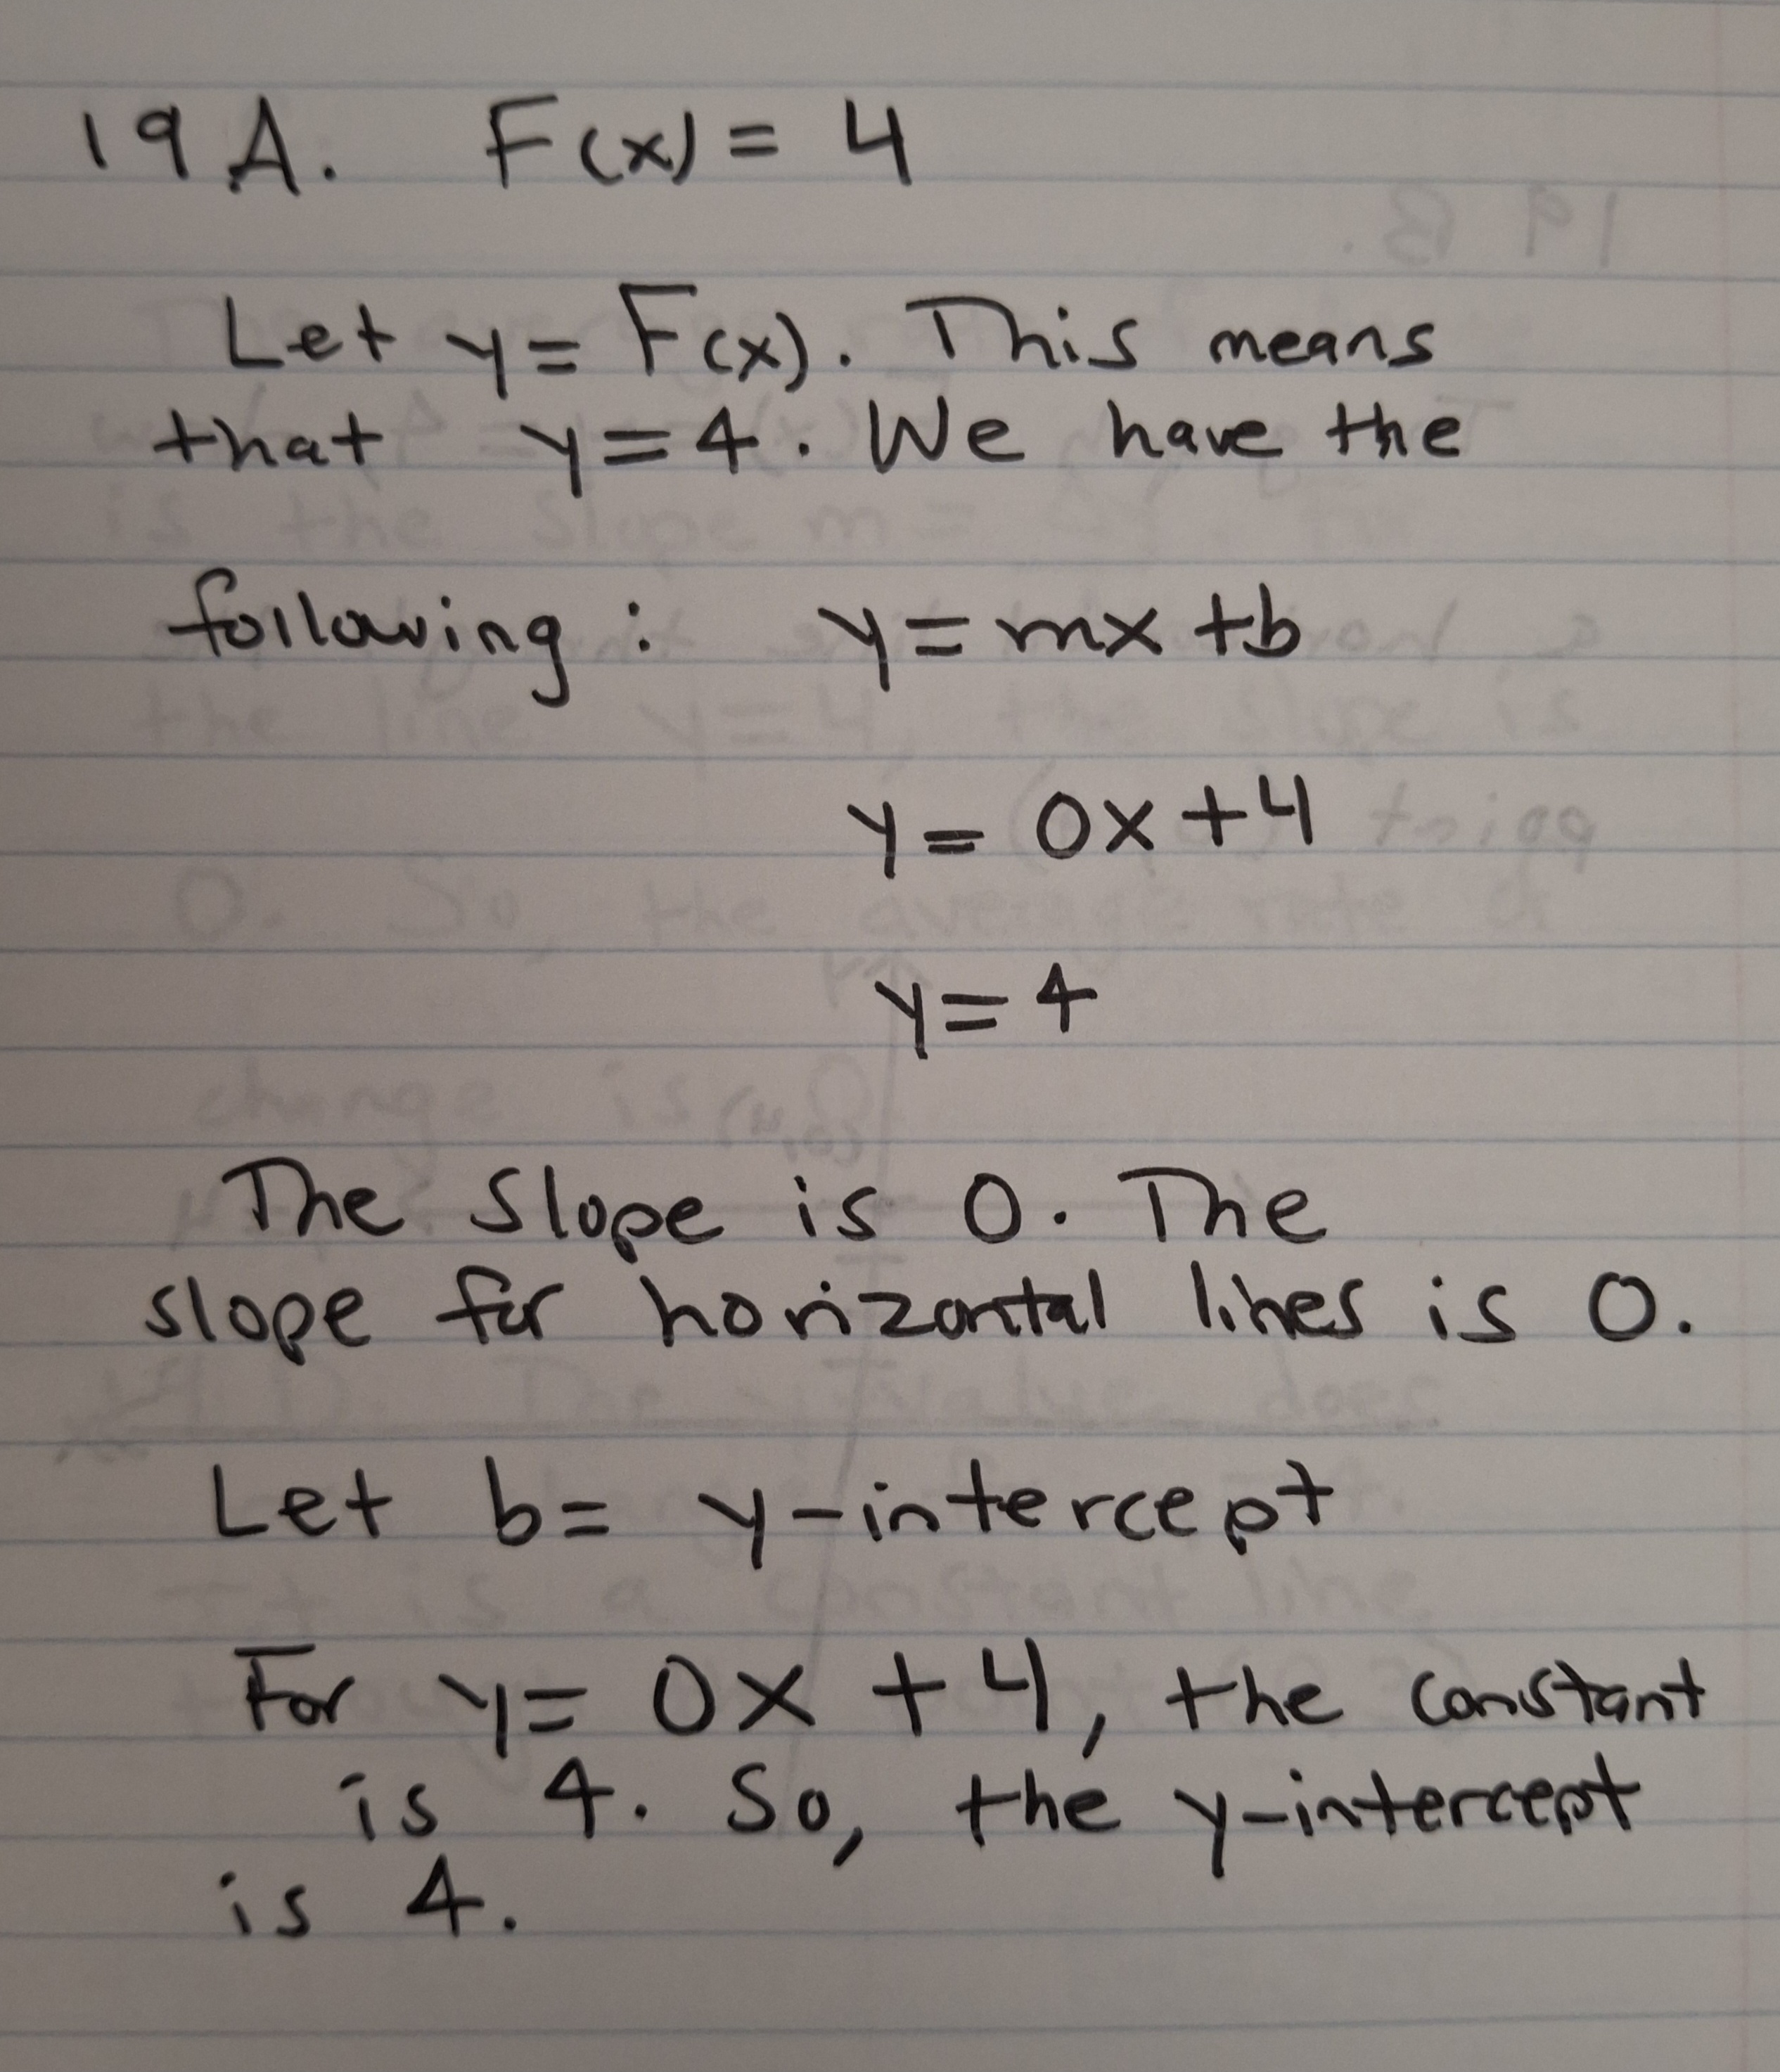 19 A. F(x) = 4
Let y = F(x). This means
that y = 4. We have the
following : y = mx + b
y = 0x + 4
y = 4
The slope is 0. The
slope for horizontal lines is 0.
Let b = y-intercept
For y = 0x + 4, the constant
is 4. So, the y-intercept
is 4.